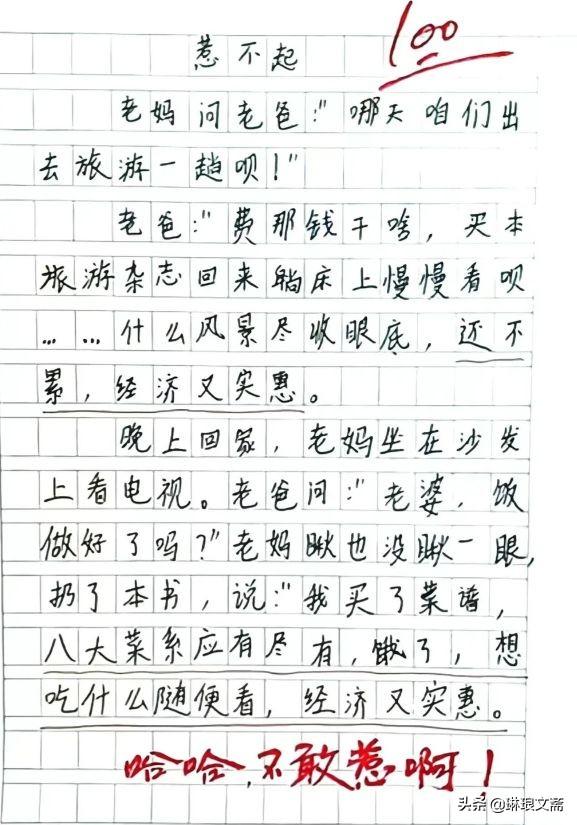 100
惹不起
老妈问老爸:"哪天咱们出
去旅游一趟呗!"
老爸:"费那钱干啥,买本
旅游杂志回来躺床上慢慢看呗
……什么风景尽收眼底,还不
累,经济又实惠。
晚上回家,老妈坐在沙发
上看电视。老爸问:"老婆,饭
做好了吗?"老妈瞅也没瞅一眼,
扔了本书,说:"我买了菜谱,
八大菜系应有尽有,饿了,想
吃什么随便看,经济又实惠。
哈哈,不敢惹啊!
头条@琳琅文斋